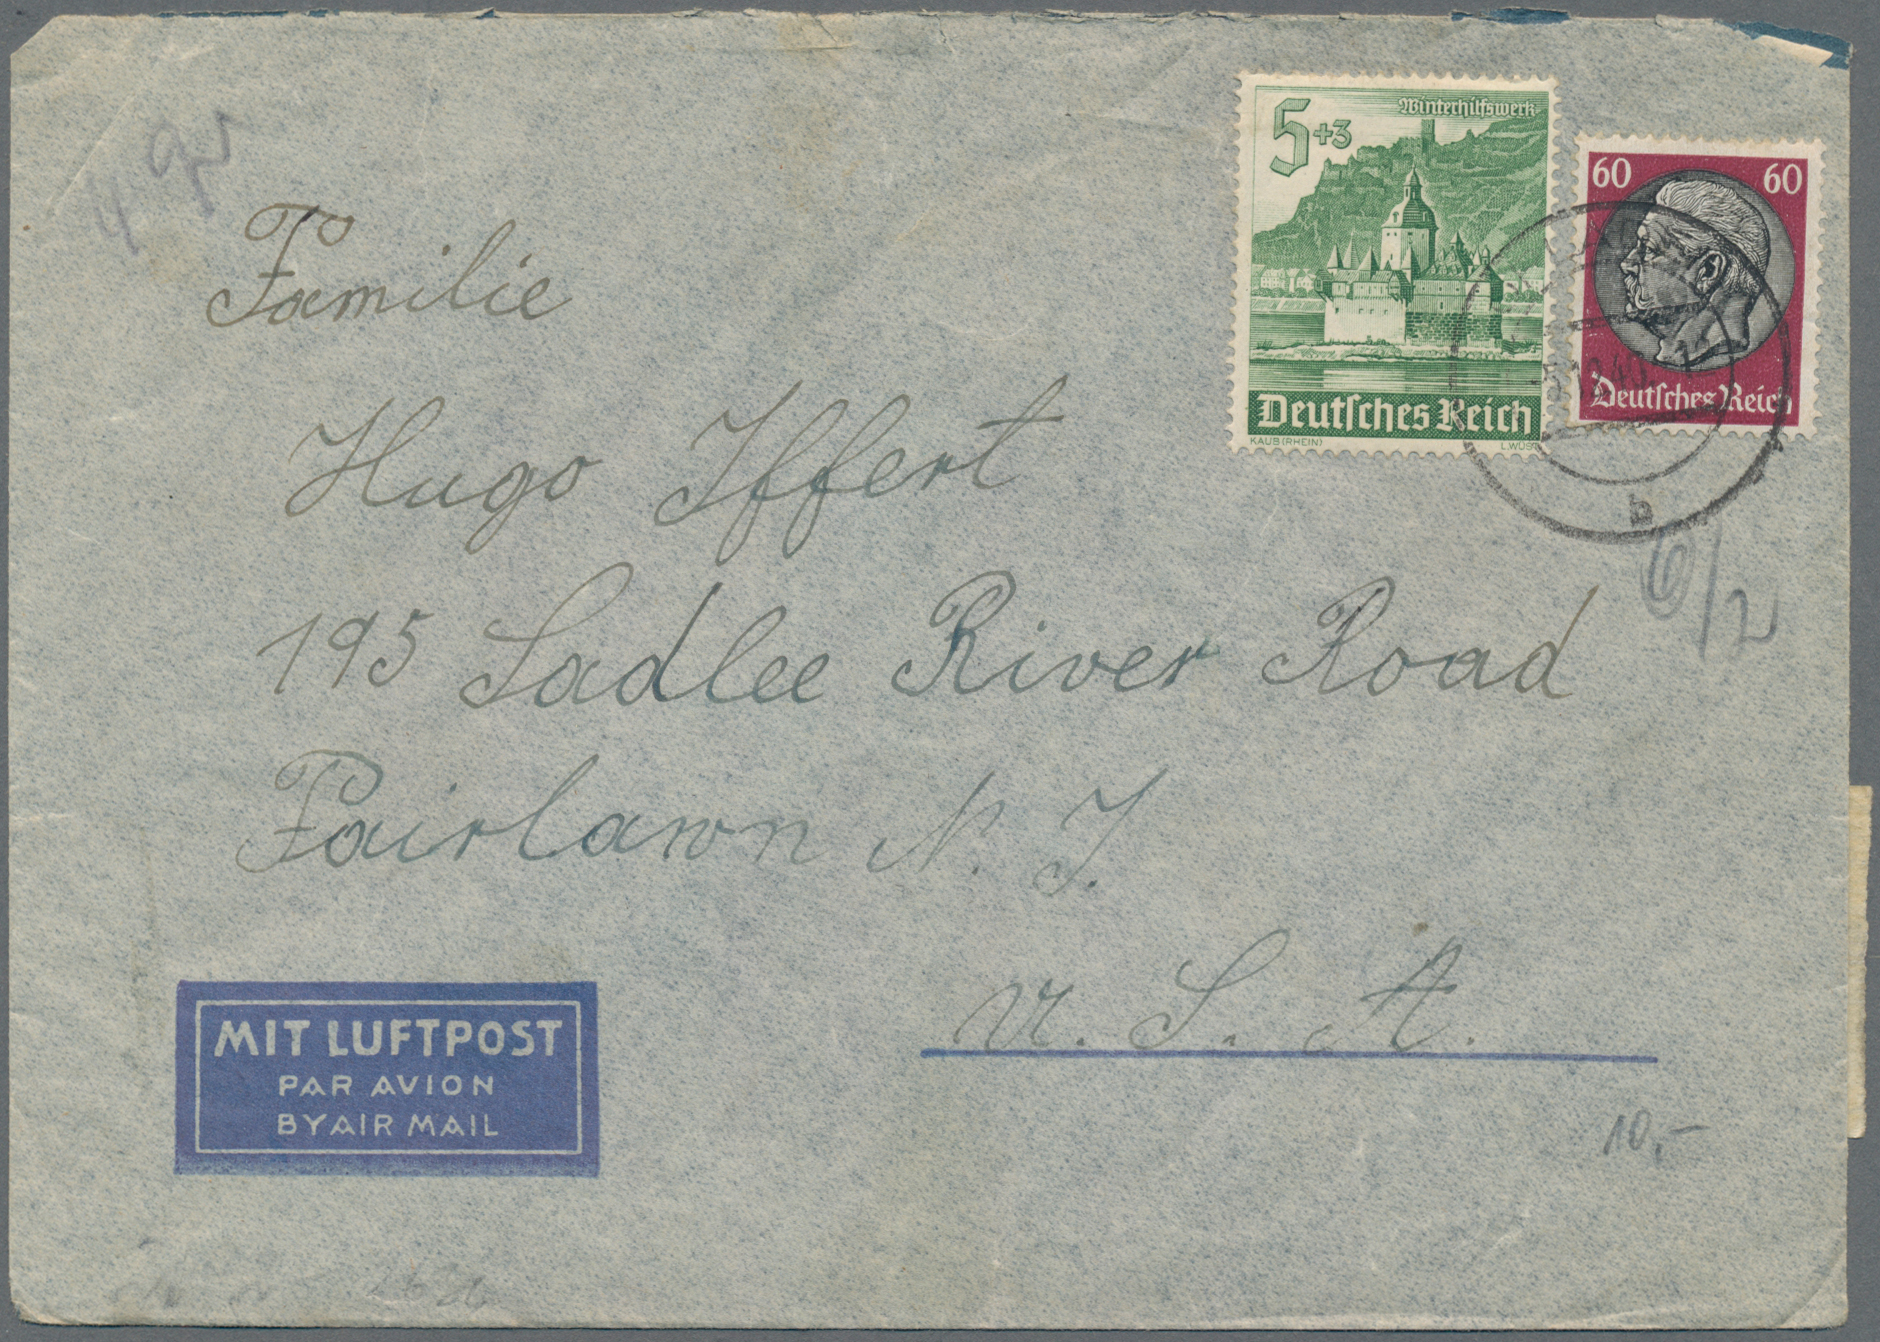 Winterhilfswerk
5+3
Deutsches Reich
KAUB (RHEIN)
60 60
Deutsches Reich
b
6/2
Familie
Hugo Iffert
195 Sadlee River Road
Fairlawn N. J.
U. S. A.
MIT LUFTPOST
PAR AVION
BY AIR MAIL
10,-